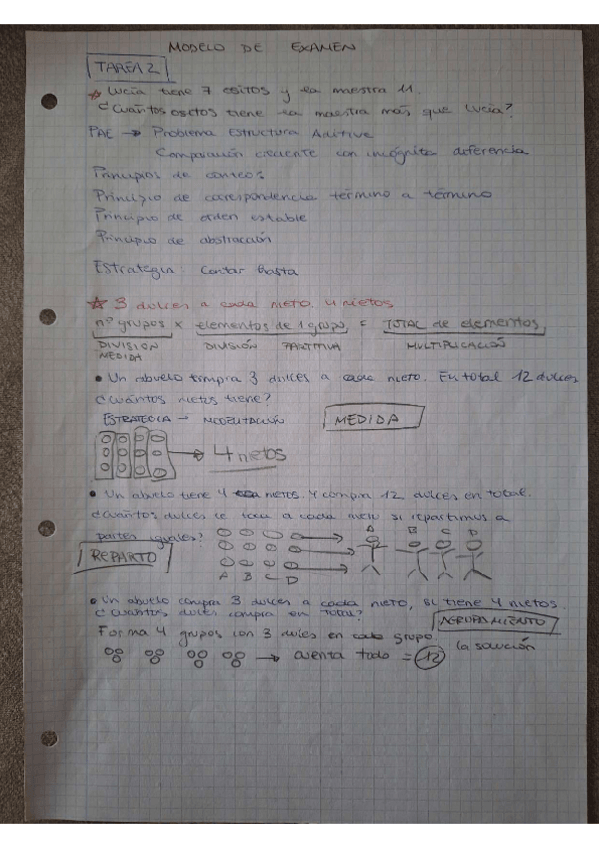 MODELO DE EXAMEN
TAREA 2
☆ Lucía tiene 7 ositos y la maestra 11.
¿Cuántos ositos tiene la maestra más que Lucía?
PAE → Problema Estructura Aditiva
Comparación creciente con incógnita diferencia
Principios de conteos
Principio de correspondencia término a término
Principio de orden estable
Principio de abstracción
Estrategia: Contar hasta
☆ 3 dulces a cada nieto. 4 nietos
nº grupos x elementos de 1 grupo = TOTAL de elementos
DIVISIÓN MEDIDA DIVISIÓN PARTITIVA MULTIPLICACIÓN
• Un abuelo compra 3 dulces a cada nieto. En total 12 dulces
¿cuántos nietos tiene?
ESTRATEGIA → MODELITACIÓN MEDIDA
→ 4 nietos
• Un abuelo tiene 4 nietos. Y compra 12 dulces en total.
¿cuántos dulces le toca a cada nieto si repartimos a
partes iguales?
REPARTO
A B C D
A B C D
• Un abuelo compra 3 dulces a cada nieto, si tiene 4 nietos
¿Cuántos dulces compra en total? AGRUPAMIENTO
Forma 4 grupos con 3 dulces en cada grupo
→ cuenta todo = 12 la solución